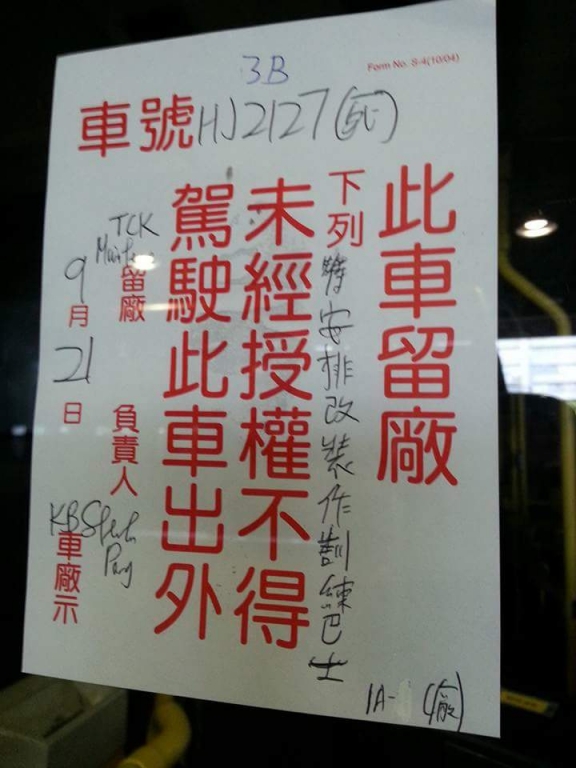 3B
Form No. S-4(10/04)
車號HJ2127
此車留廠
下列待安排改裝作訓練巴士
未經授權不得
駕駛此車出外
TCK
留廠
負責人
9月21日
KB
車廠示
1A- (廠)